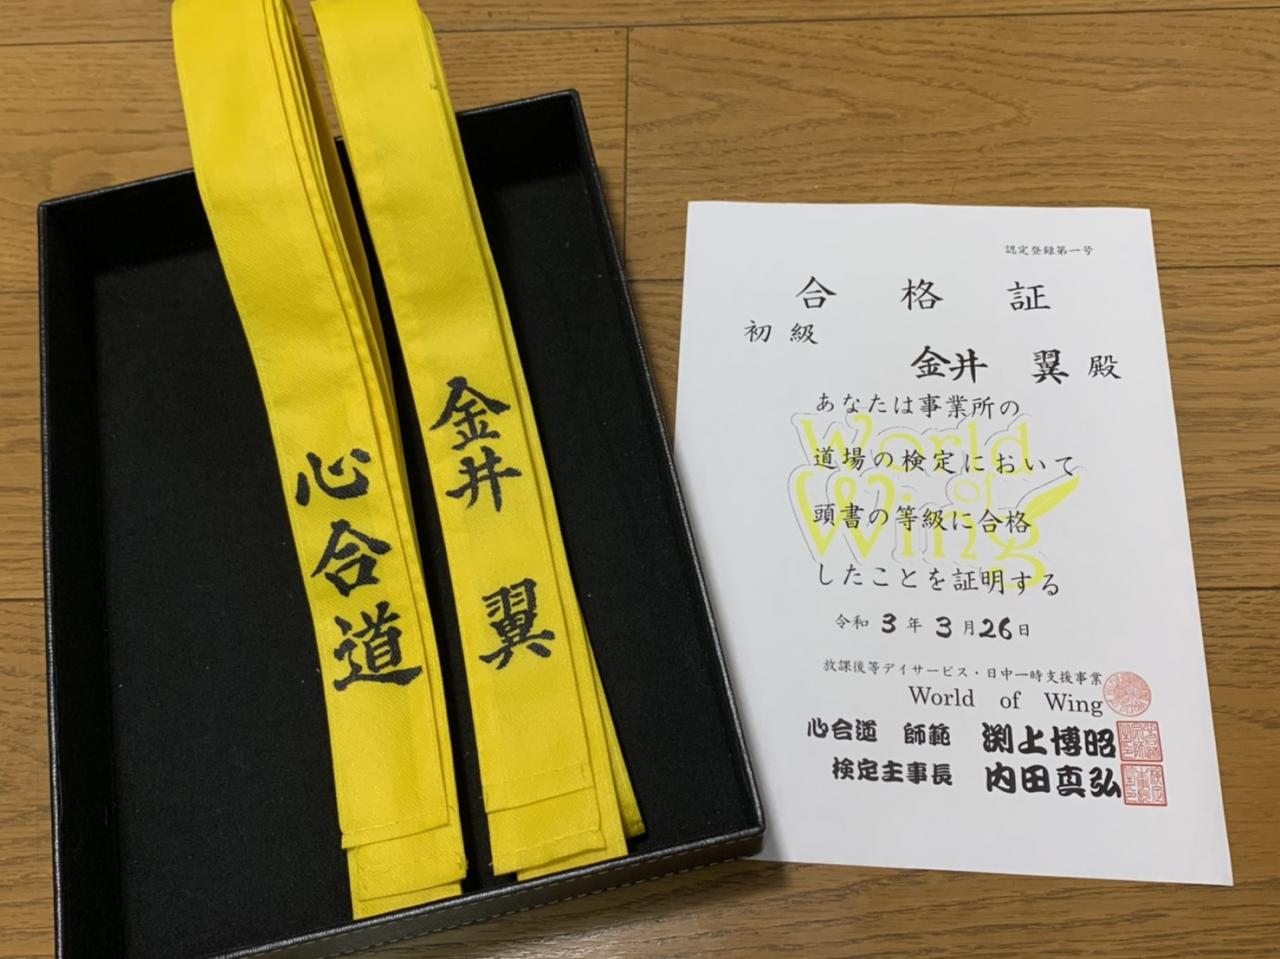 心合道
金井 翼
認定登録第一号
合格証
初級
金井 翼 殿
あなたは事業所の
道場の検定において
頭書の等級に合格
したことを証明する
World
of
Wing
令和3年3月26日
放課後等デイサービス・日中一時支援事業
World of Wing
心合道 師範 渕上博昭
検定主事長 内田真弘